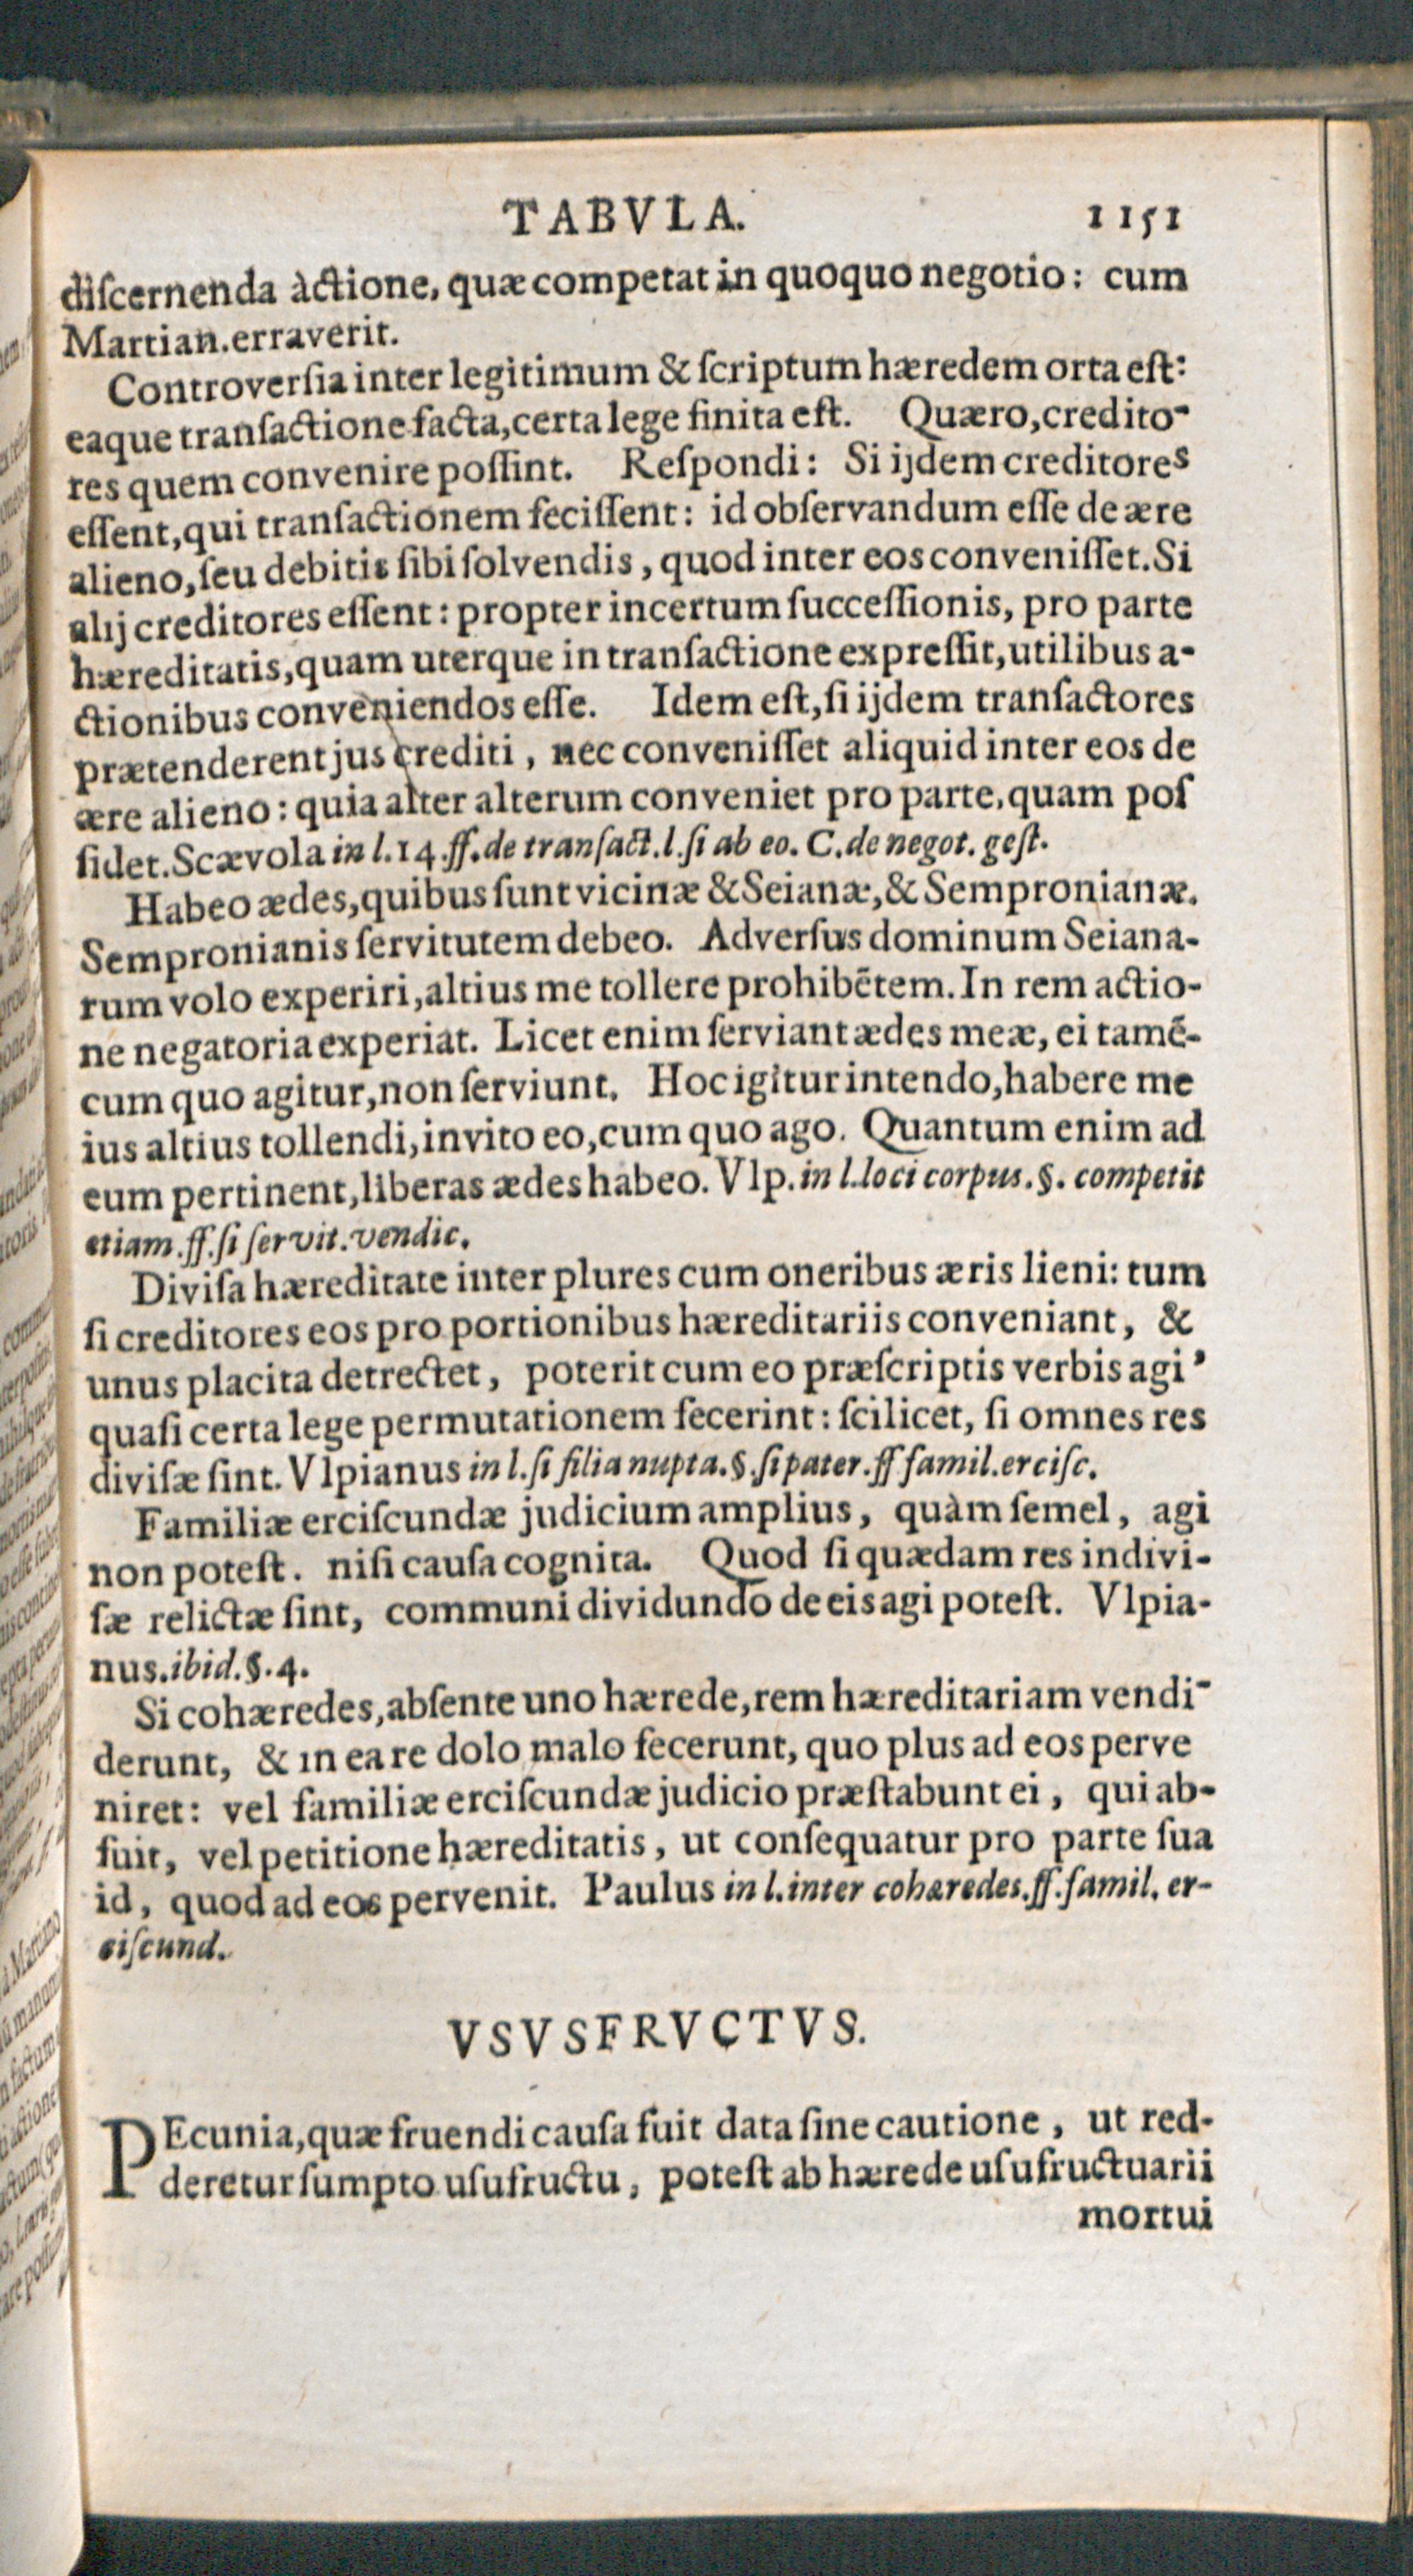 TABVLA. 1151
diſcernenda àctione, quæ competat in quoquo negotio: cum
Martian. erraverit.
Controverſia inter legitimum & ſcriptum hæredem orta eſt:
eaque tranſactione facta, certa lege finita eſt. Quæro, credito-
res quem convenire poſſint. Reſpondi: Si ijdem creditores
eſſent, qui tranſactionem feciſſent: id obſervandum eſſe de ære
alieno, ſeu debitis ſibi ſolvendis, quod inter eos conveniſſet. Si
alij creditores eſſent: propter incertum ſucceſſionis, pro parte
hæreditatis, quam uterque in tranſactione expreſſit, utilibus a-
ctionibus conveniendos eſſe. Idem eſt, ſi ijdem tranſactores
prætenderent jus crediti, nec conveniſſet aliquid inter eos de
ære alieno: quia alter alterum conveniet pro parte, quam poſ
ſidet. Scævola in l. 14. ff. de tranſact. l. ſi ab eo. C. de negot. geſt.
Habeo ædes, quibus ſunt vicinæ & Seianæ, & Sempronianæ.
Sempronianis ſervitutem debeo. Adverſus dominum Seiana-
rum volo experiri, altius me tollere prohibẽtem. In rem actio-
ne negatoria experiat. Licet enim ſerviant ædes meæ, ei tamẽ-
cum quo agitur, non ſerviunt. Hoc igitur intendo, habere me
ius altius tollendi, invito eo, cum quo ago. Quantum enim ad
eum pertinent, liberas ædes habeo. Vlp. in l. loci corpus. §. competit
etiam. ff. ſi ſervit. vendic.
Diviſa hæreditate inter plures cum oneribus æris lieni: tum
ſi creditores eos pro portionibus hæreditariis conveniant, &
unus placita detrectet, poterit cum eo præſcriptis verbis agi’
quaſi certa lege permutationem fecerint: ſcilicet, ſi omnes res
diviſæ ſint. Vlpianus in l. ſi filia nupta. §. ſi pater. ff famil. erciſc.
Familiæ erciſcundæ judicium amplius, quàm ſemel, agi
non poteſt. niſi cauſa cognita. Quod ſi quædam res indivi-
ſæ relictæ ſint, communi dividundo de eis agi poteſt. Vlpia-
nus. ibid. §. 4.
Si cohæredes, abſente uno hærede, rem hæreditariam vendi-
derunt, & in ea re dolo malo fecerunt, quo plus ad eos perve
niret: vel familiæ erciſcundæ judicio præſtabunt ei, qui ab-
fuit, vel petitione hæreditatis, ut conſequatur pro parte ſua
id, quod ad eos pervenit. Paulus in l. inter cohæredes. ff. famil. er-
ciſcund.
VSVSFRVCTVS.
PEcunia, quæ fruendi cauſa fuit data ſine cautione, ut red-
deretur ſumpto uſufructu, poteſt ab hærede uſufructuarii
mortui